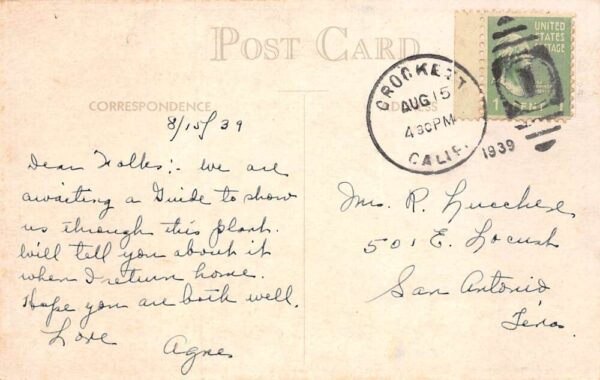 POST CARD
UNITED
STATES
POSTAGE
1 CENT 1
CROCKETT
AUG 15
4 30 PM
CALIF.
1939
CORRESPONDENCE
ADDRESS
8/15/39
Dear Folks:- We are
awaiting a Guide to show
us through this plant.
Will tell you about it
when I return home.
Hope you are both well.
Love
Agnes
Mrs. R. Lucchese
501 E. Locust
San Antonio
Texas.